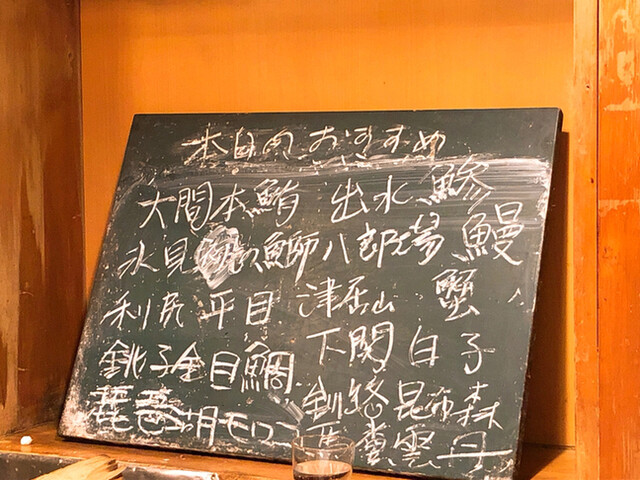 本日のおすすめ
大間本鮪 出水 鰺
氷見 鰤 八郎潟 鰻
利尻 平目 津居山 蟹
銚子金目鯛 下関 白子
琵琶湖モロコ 釧路 昆布森
雲丹